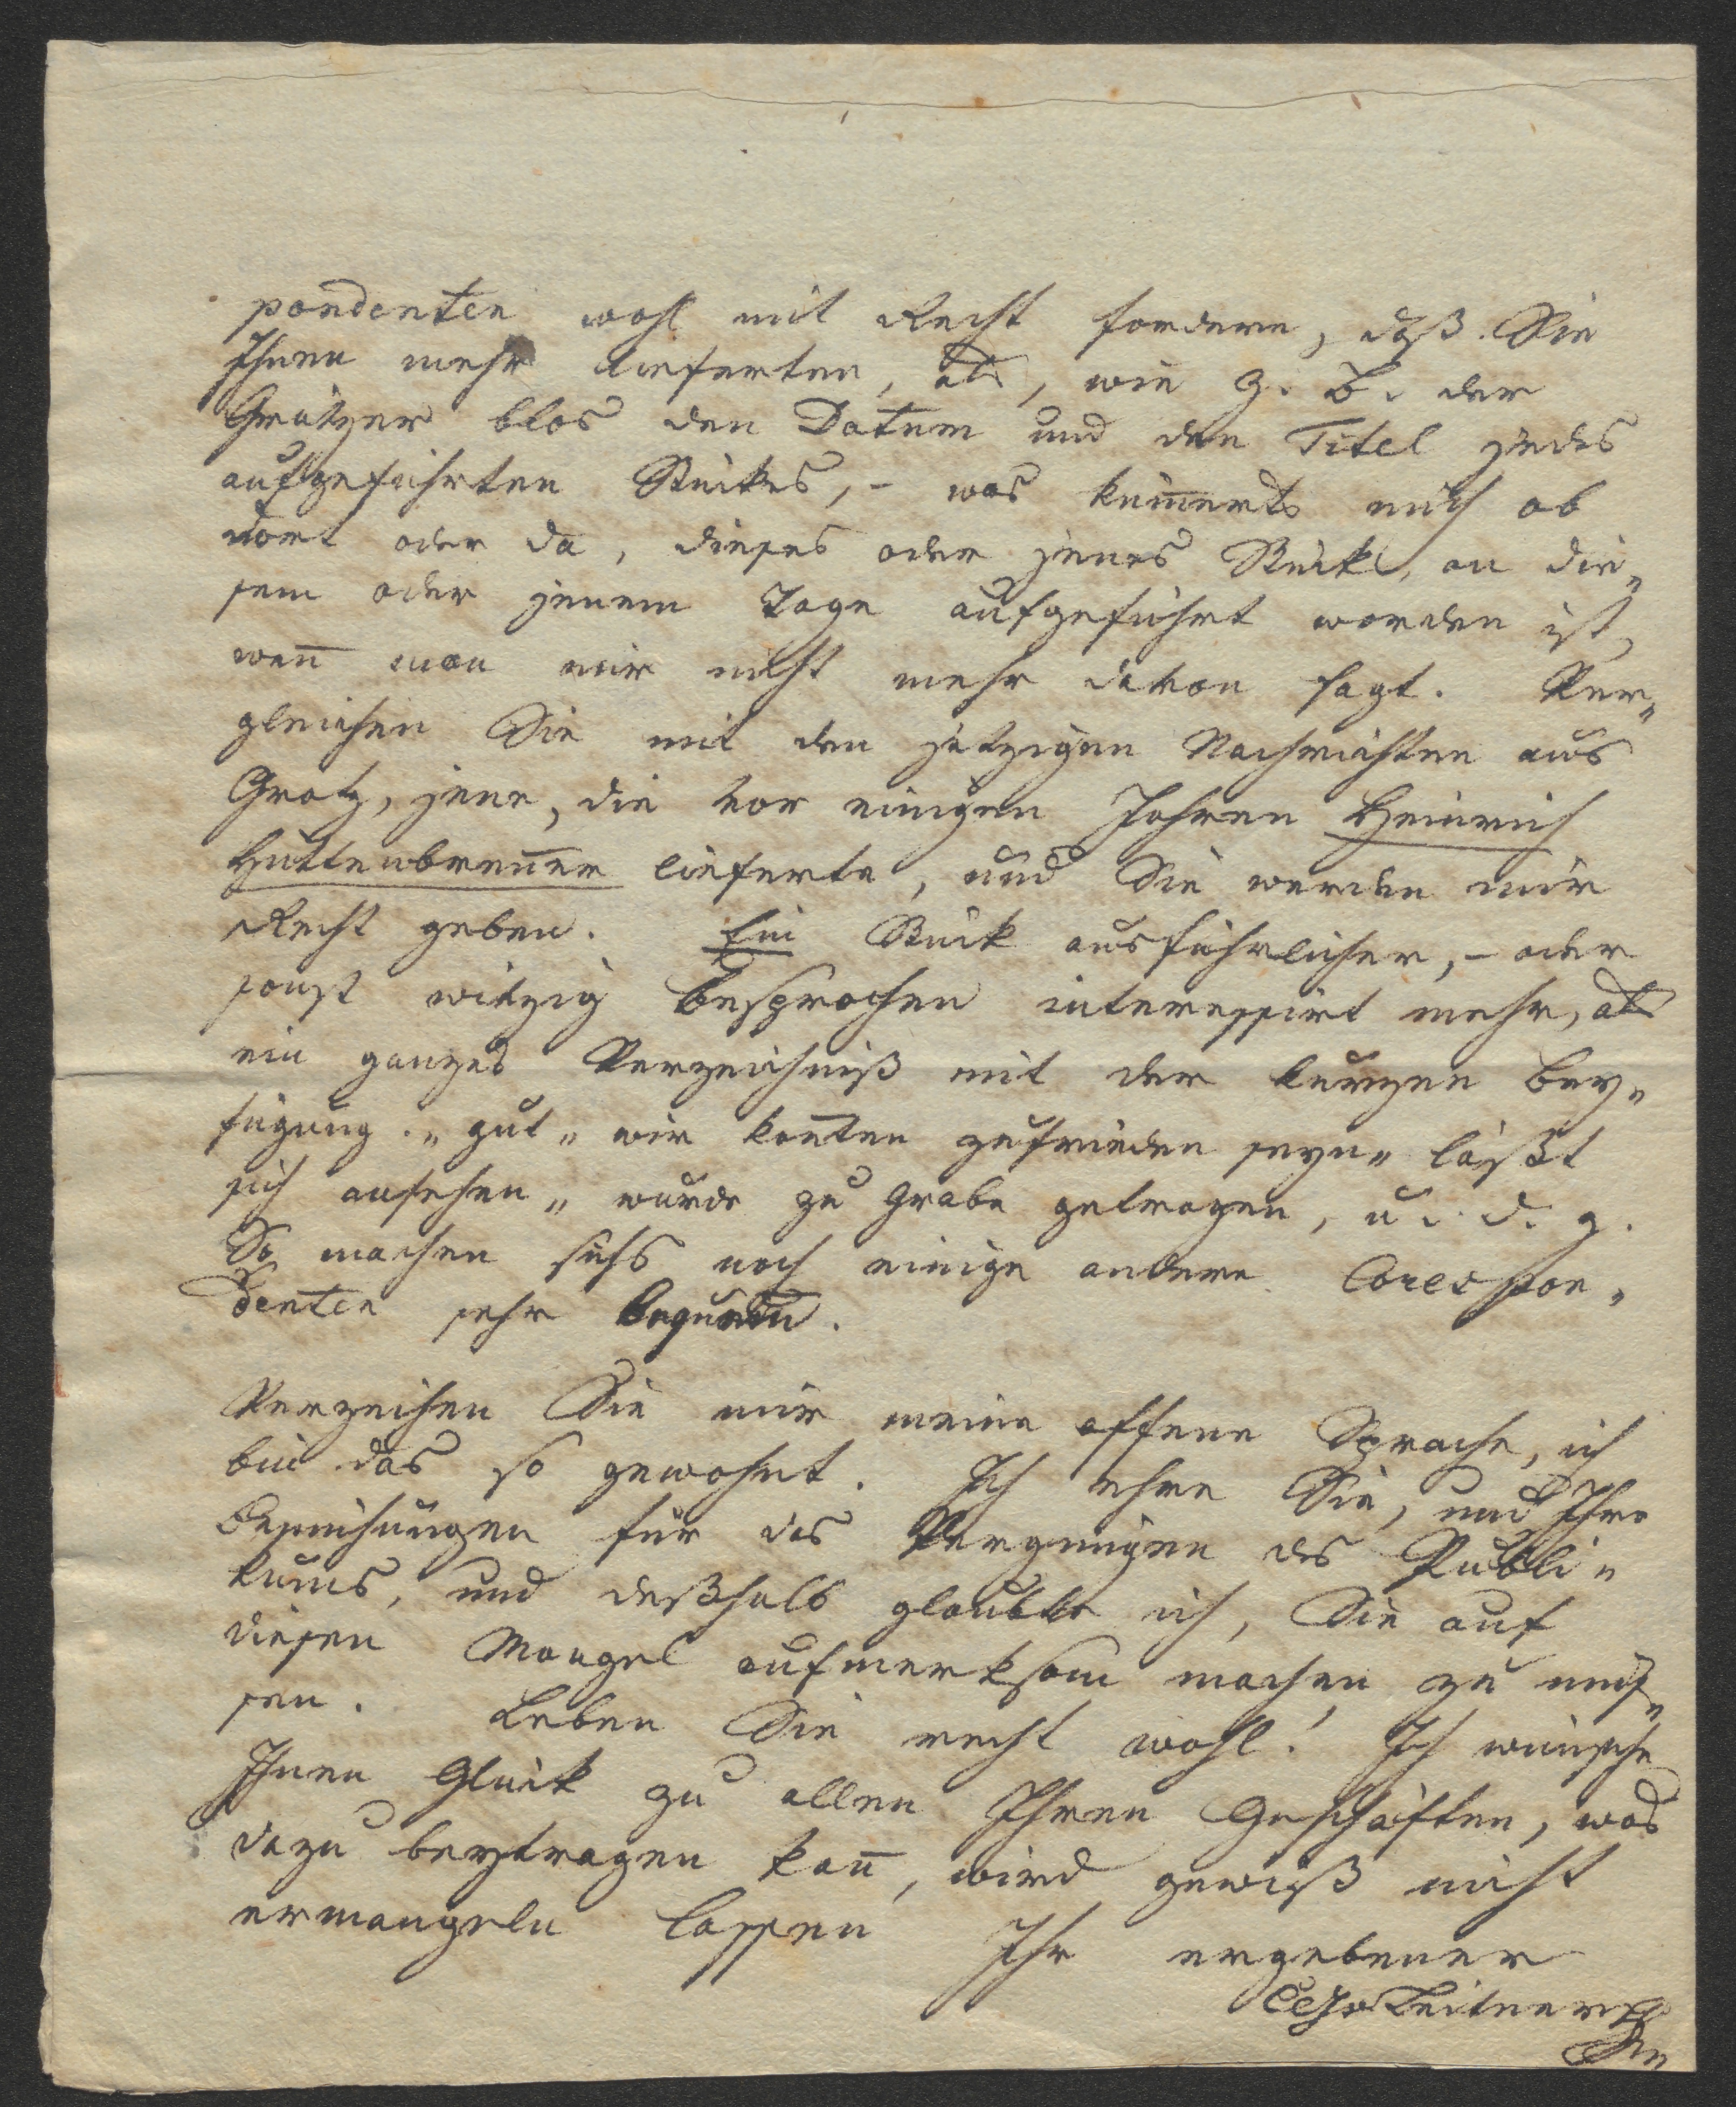 pondenten wohl mit Recht fordern, daß Sie
Ihnen mehr lieferten, als, wie z. B. der
Grätzer blos den Datum und den Titel jedes
aufgeführten Stückes, – was kümmerts mich ob
dort oder da, dieses oder jenes Stück, an die„
sem oder jenem Tage aufgeführt worden ist,
wen̅ man mir nicht mehr davon sagt. Ver„
gleichen Sie mit den jetzigen Nachrichten aus
Gratz, jene, die vor einigen Jahren Heinrich
Hüttenbren̅er lieferte, und Sie werden mir
Recht geben. Ein Stück ausführlicher, – oder
sonst witzig besprochen interessirt mehr, als
ein ganzes Verzeichniß mit der kurzen Bey„
fügung „gut„ wir kon̅ten zufrieden seyn„ läßt
sich ansehen„ wurde zu Grabe getragen, u. d. g.
So machen sichs noch einige andere Correspon„
denten sehr bequem.
Verzeihen Sie mir meine offene Sprache, ich
bin das so gewohnt. Ich ehre Sie, und Ihre
Bemühungen für das Vergnügen des Publi„
kums, und deßhalb glaubte ich, Sie auf
diesen Mangel aufmerksam machen zu müs„
sen. Leben Sie recht wohl! Ich wünsche
Ihnen Glück zu allen Ihren Geschäften, was
dazu beytragen kan̅, wird gewiß nicht
ermangeln lassen Ihr ergebener
Leitner